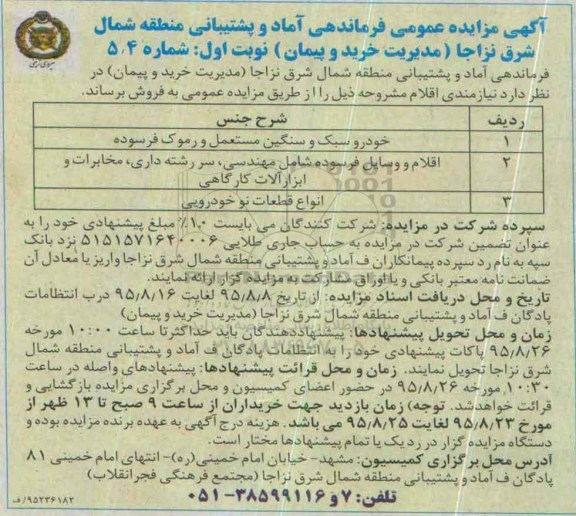 آگهی مزایده عمومی فرماندهی آماد و پشتیبانی منطقه شمال
شرق نزاجا (مدیریت خرید و پیمان) نوبت اول: شماره ۵٫۴
فرماندهی آماد و پشتیبانی منطقه شمال شرق نزاجا (مدیریت خرید و پیمان) در
نظر دارد نیازمندی اقلام مشروحه ذیل را از طریق مزایده عمومی به فروش برساند.
ردیف شرح جنس
۱ خودرو سبک و سنگین مستعمل و رموک فرسوده
۲ اقلام و وسایل فرسوده شامل مهندسی، سر رشته داری، مخابرات و
ابزارآلات کارگاهی
۳ انواع قطعات نو خودرویی
سپرده شرکت در مزایده: شرکت کنندگان می بایست ۱۰٪ مبلغ پیشنهادی خود را به
عنوان تضمین شرکت در مزایده به حساب جاری طلایی ۵۱۵۱۵۷۱۶۴۰۰۰۶ نزد بانک
سپه به نام رد سپرده پیمانکاران ف آماد و پشتیبانی منطقه شمال شرق نزاجا واریز یا معادل آن
ضمانت نامه معتبر بانکی و یا اوراق مشارکت به مزایده گزار ارائه نمایند.
تاریخ و محل دریافت اسناد مزایده: از تاریخ ۹۵/۸/۸ لغایت ۹۵/۸/۱۶ درب انتظامات
پادگان ف آماد و پشتیبانی منطقه شمال شرق نزاجا (مدیریت خرید و پیمان)
زمان و محل تحویل پیشنهادها: پیشنهاددهندگان باید حداکثر تا ساعت ۱۰:۰۰ مورخه
۹۵/۸/۲۶ پاکات پیشنهادی خود را به انتظامات پادگان ف آماد و پشتیبانی منطقه شمال
شرق نزاجا تحویل نمایند. زمان و محل قرائت پیشنهادها: پیشنهادهای واصله در ساعت
۱۰:۳۰ مورخه ۹۵/۸/۲۶ در حضور اعضای کمیسیون و محل برگزاری مزایده بازگشایی و
قرائت خواهد شد. توجه) زمان بازدید جهت خریداران از ساعت ۹ صبح تا ۱۳ ظهر از
مورخ ۹۵/۸/۲۳ لغایت ۹۵/۸/۲۵ می باشد. هزینه درج آگهی به عهده برنده مزایده بوده و
دستگاه مزایده گزار در رد یک یا تمام پیشنهادها مختار است.
آدرس محل برگزاری کمیسیون: مشهد- خیابان امام خمینی(ره)- انتهای امام خمینی ۸۱
پادگان ف آماد و پشتیبانی منطقه شمال شرق نزاجا (مجتمع فرهنگی فجر انقلاب)
تلفن: ۷ و ۳۸۵۹۹۱۱۶-۰۵۱
۹۵۲۳۶۱۸۲/ف